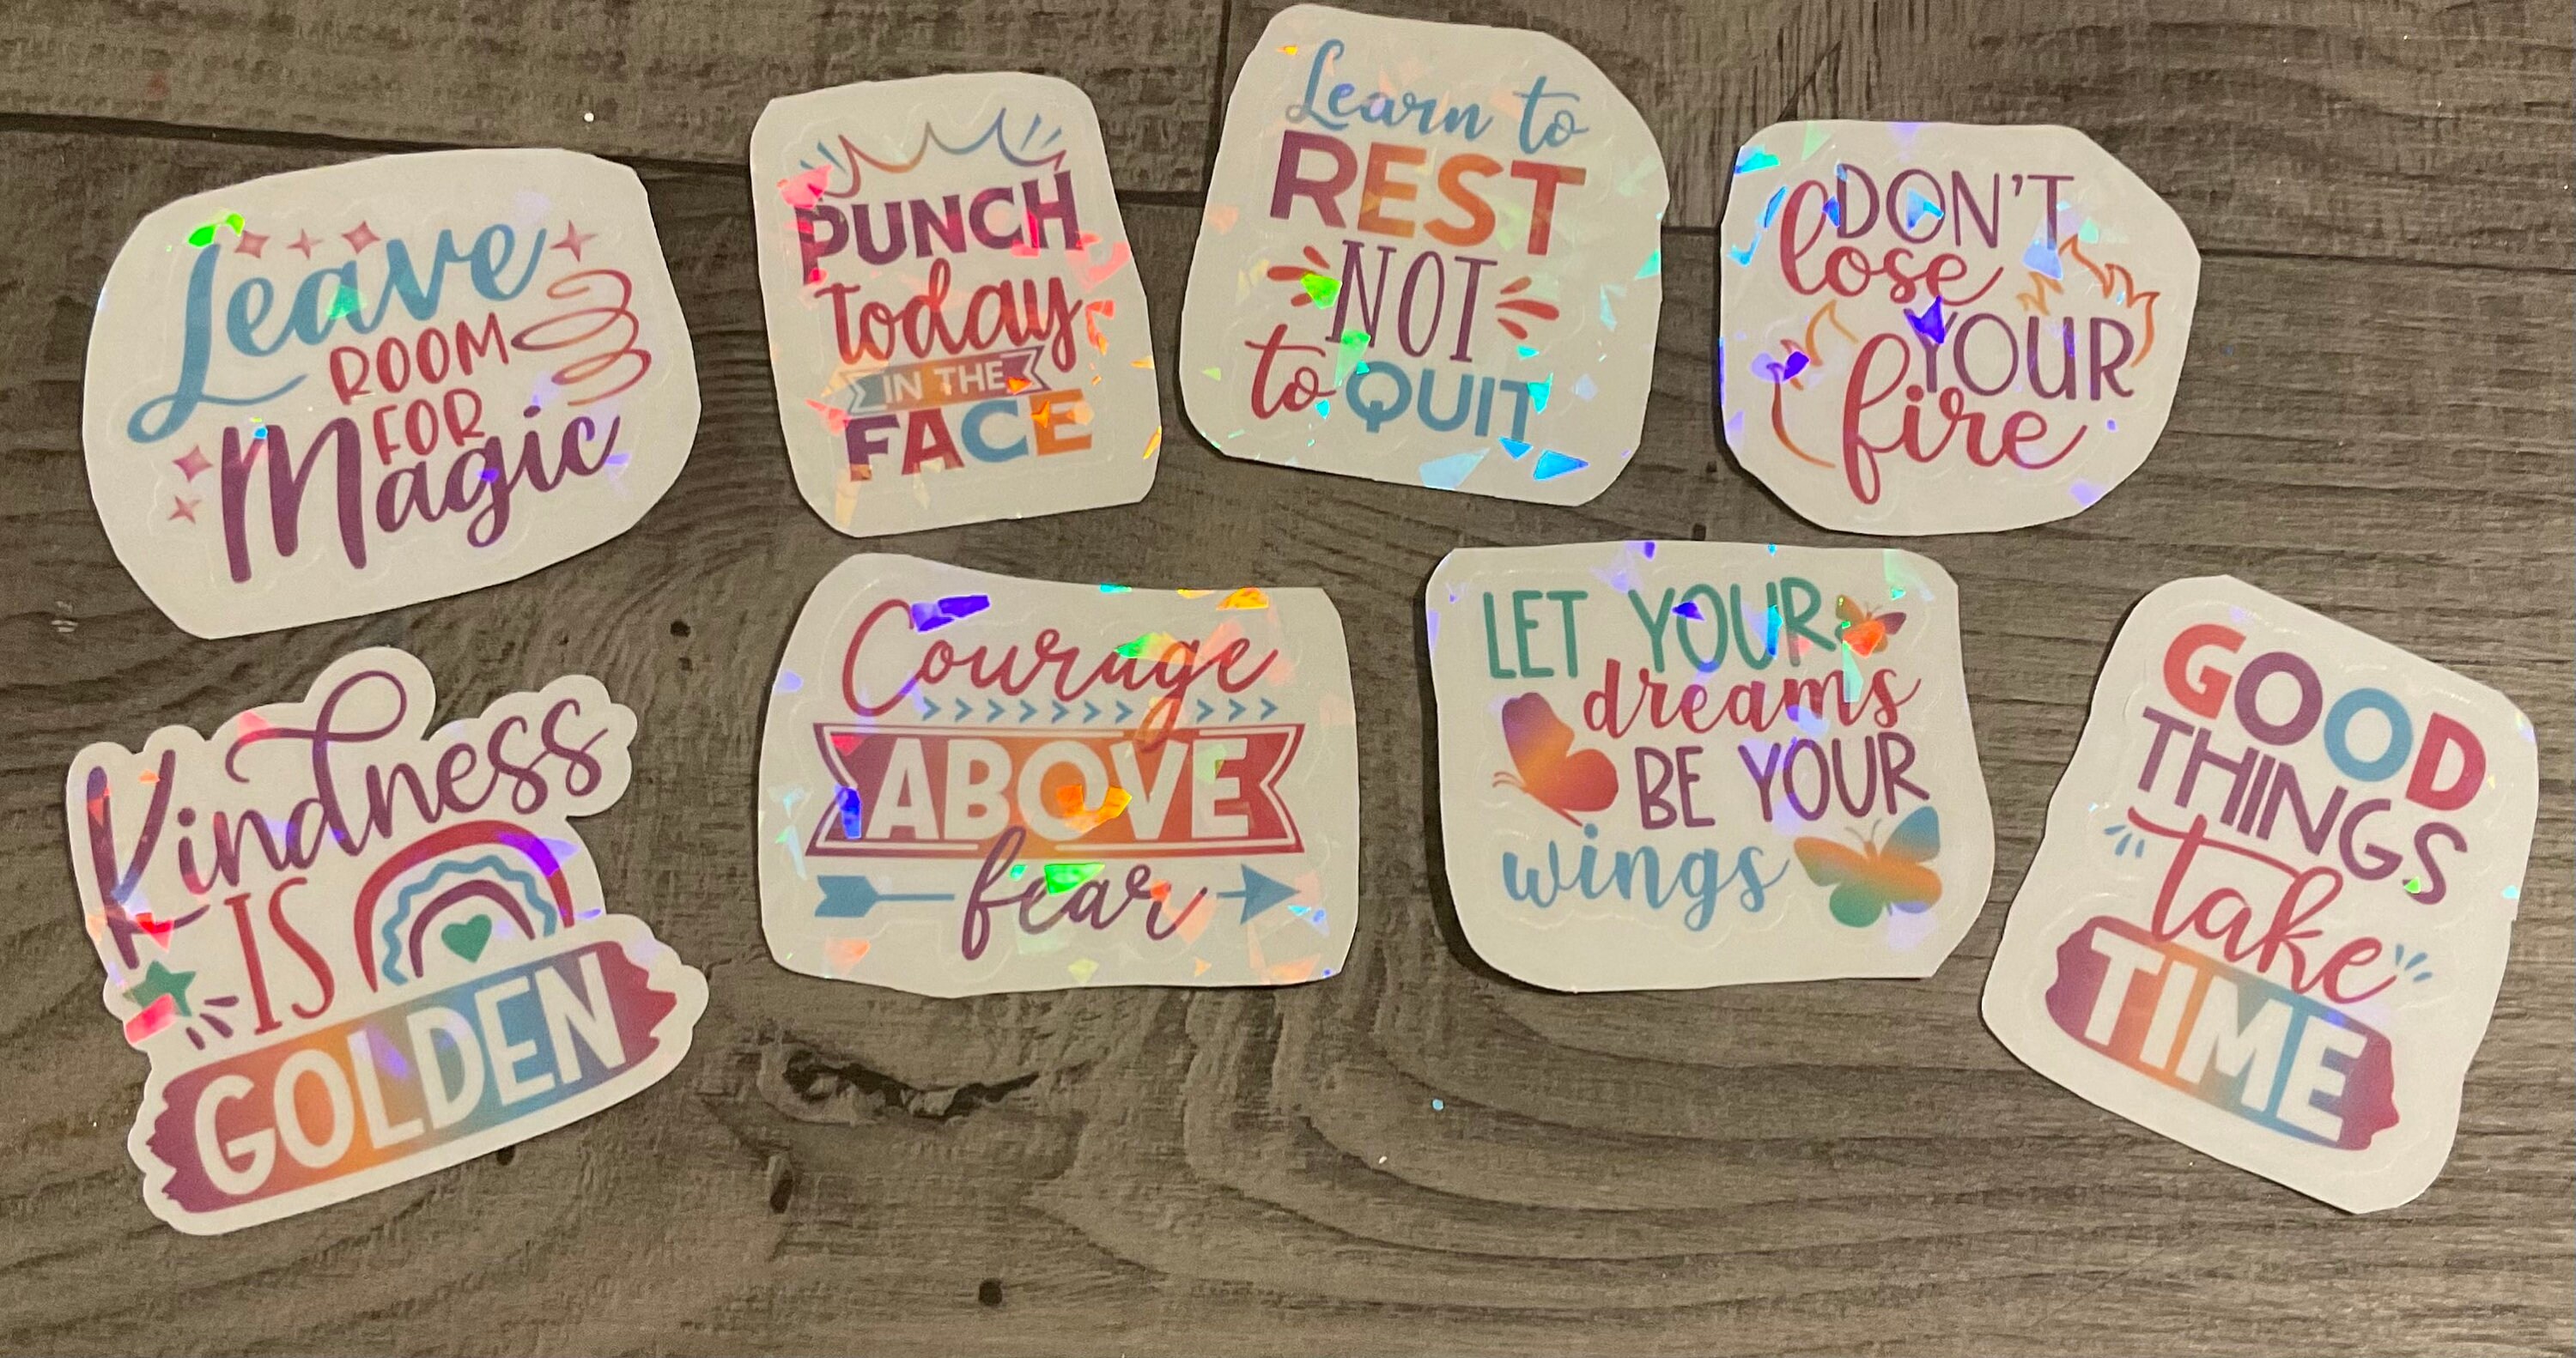 Leave
ROOM
FOR
Magic
PUNCH
today
IN THE
FACE
Learn to
REST
NOT
to QUIT
DON'T
lose
YOUR
fire
Kindness
IS
GOLDEN
Courage
ABOVE
fear
LET YOUR
dreams
BE YOUR
wings
GOOD
THINGS
take
TIME